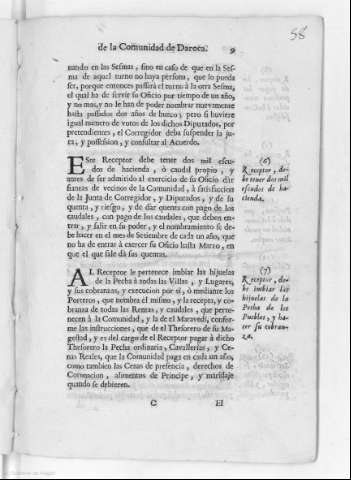 58
de la Comunidad de Daroca. 9
nando en las Sesmas, sino en caso de que en la Ses-
ma de aquel turno no haya persona, que lo pueda
ser, porque entonces passará el turno à la otra Sesma,
el qual ha de servir su Oficio por tiempo de un año,
y no mas, y no le han de poder nombrar nuevamente
hasta passados dos años de hueco; pero si huviere
igual numero de votos de los dichos Diputados, por
pretendientes, el Corregidor deba suspender la ju-
ra, y possession, y consultar al Acuerdo.
ESte Receptor debe tener dos mil escu-
dos de hacienda, ò caudal proprio, y
antes de ser admitido al exercicio de su Oficio dar
fianzas de vecinos de la Comunidad, à satisfaccion
de la Junta de Corregidor, y Diputados, y de su
cuenta, y riesgo, y de dar cuentas con pago de los
caudales, con pago de los caudales, que deben en-
trar, y salir en su poder, y el nombramiento se de-
be hacer en el mes de Setiembre de cada un año, que
no ha de entrar à exercer su Oficio hasta Marzo, en
que el que sale dà sus quentas.
(6)
Receptor, de-
be tener dos mil
escudos de ha-
cienda.
AL Receptor le pertenece imbiar las hijuelas
de la Pecha à todas las Villas, y Lugares,
y sus cobranzas, y execucion por sì, ò mediante los
Porteros, que nombra èl mismo, y la recepta, y co-
branza de todas las Rentas, y caudales, que perte-
necen à la Comunidad, y la de el Maravedi, confor-
me las instrucciones, que dè el Thesorero de su Ma-
gestad, y es del cargo de el Receptor pagar à dicho
Thesorero la Pecha ordinaria, Cavallerias, y Ce-
nas Reales, que la Comunidad paga en cada un año,
como tambien las Cenas de presencia, derechos de
Coronacion, alimentos de Principe, y maridaje
quando se debieren.
(7)
Receptor, de-
be imbiar las
hijuelas de la
Pecha de los
Pueblos, y ha-
cer su cobran-
za.
C El